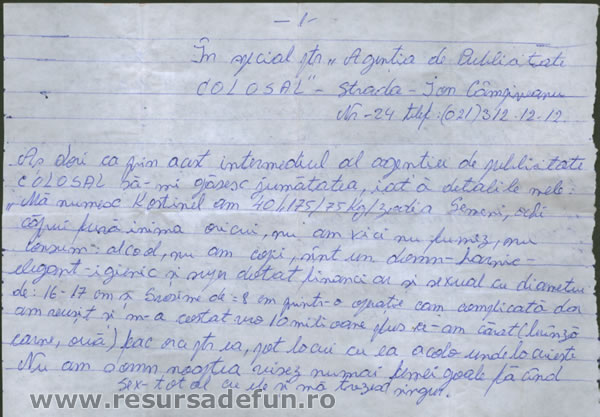 - 1 -
În special ptr „Agentia de Publicitate
COLOSAL" - Strada - Ion Câmpineanu
Nr - 24 telef: (021) 312-12-12
Aș dori ca prin acest intermediul al agentiei de publicitate
COLOSAL să-mi găsesc jumătatea, iată detaliile mele:
„Mă numesc Kostinel am 40/1,75/75 kg/zodia Gemeni, ochi
căprui fură inima oricui, nu am vicii nu fumez, nu
consum alcool, nu am copii, sînt un domn - harnic -
elegant - igienic și super dotat financiar și sexual cu diametru
de: 16-17 cm și grosime de = 8 cm printr-o operație cam complicată dar
am reușit și m-a costat vro 10 milioane plus ce i-am cărat (brînză
carne, ouă) fac orice ptr ea, pot locui cu ea acolo unde locuiește
Nu am somn noaptea visez numai femei goale făcând
sex - total cu ele și mă trezesc singur.
www.resursadefun.ro